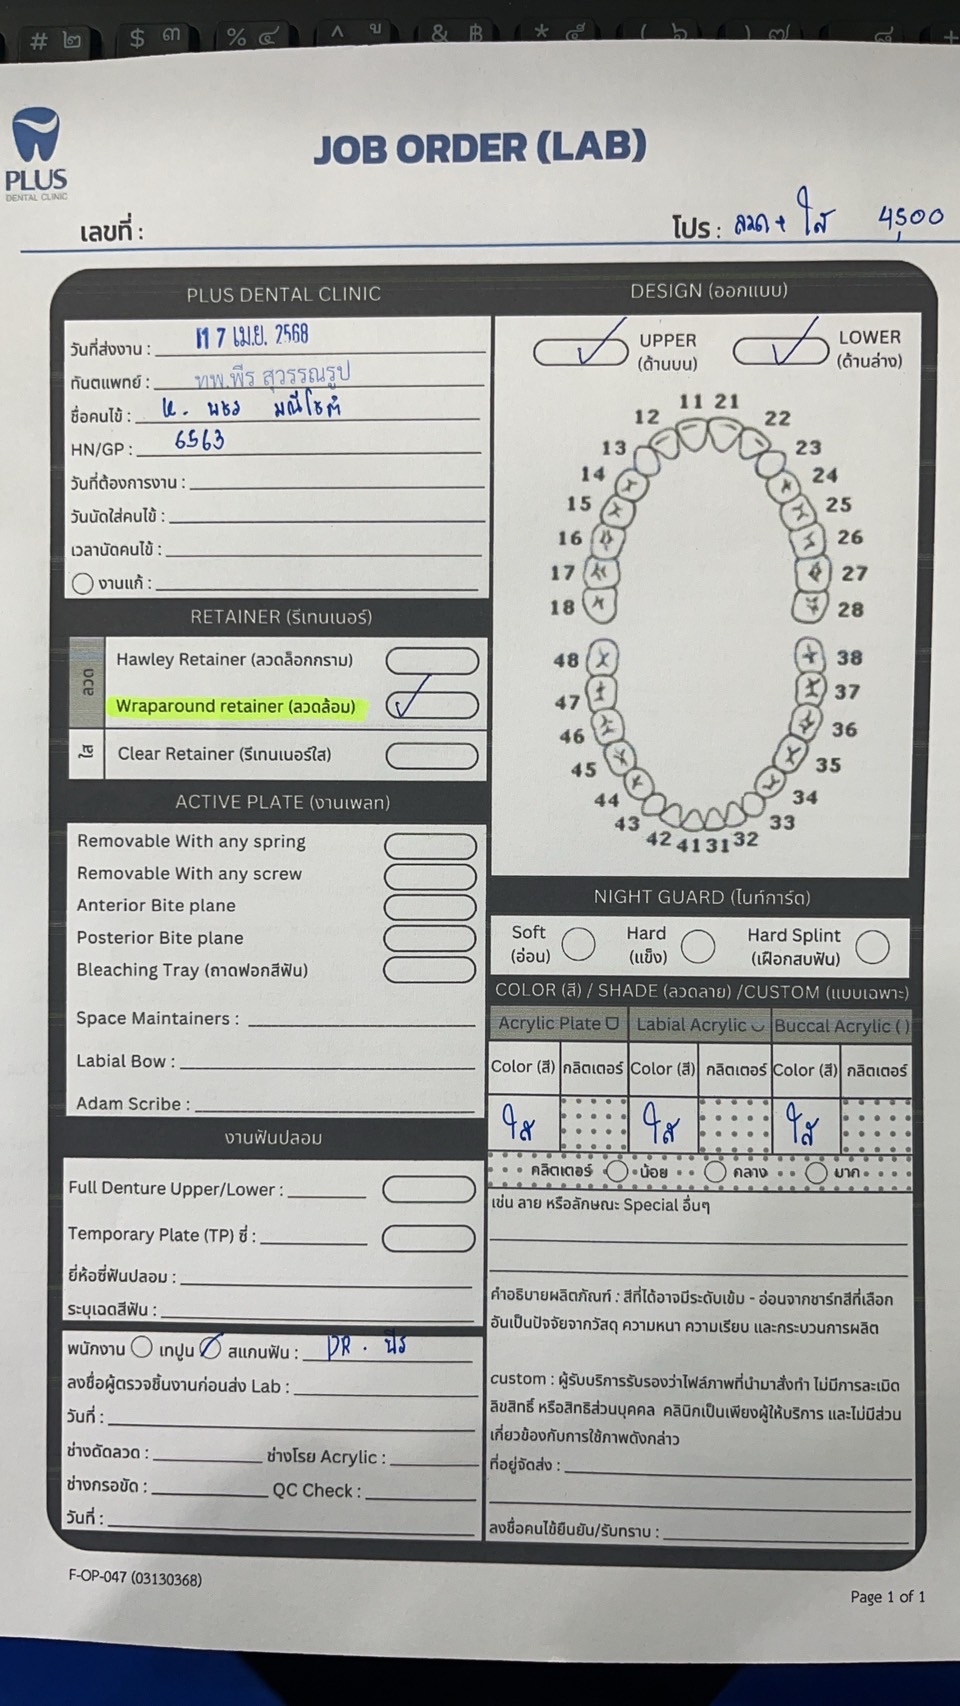 # ๒ $ ๓ % ๔ ^ ู & ฿ * ๕ ( ๖ ) ๗ ๘ +
PLUS
DENTAL CLINIC
JOB ORDER (LAB)
เลขที่ :
โปร : ลวด + ใส 4,500
PLUS DENTAL CLINIC
วันที่ส่งงาน : 17 เม.ย. 2568
ทันตแพทย์ : ทพ.พีร สุวรรณรูป
ชื่อคนไข้ :
HN/GP : 6563
วันที่ต้องการงาน :
วันนัดใส่คนไข้ :
เวลานัดคนไข้ :
งานแก้ :
RETAINER (รีเทนเนอร์)
ลวด
Hawley Retainer (ลวดล็อกกราม)
Wraparound retainer (ลวดล้อม)
ใส
Clear Retainer (รีเทนเนอร์ใส)
ACTIVE PLATE (งานเพลท)
Removable With any spring
Removable With any screw
Anterior Bite plane
Posterior Bite plane
Bleaching Tray (ถาดฟอกสีฟัน)
Space Maintainers :
Labial Bow :
Adam Scribe :
งานฟันปลอม
Full Denture Upper/Lower :
Temporary Plate (TP) ซี่ :
ยี่ห้อซี่ฟันปลอม :
ระบุเฉดสีฟัน :
พนักงาน เทปูน สแกนฟัน : DR. พีร
ลงชื่อผู้ตรวจชิ้นงานก่อนส่ง Lab :
วันที่ :
ช่างดัดลวด : ช่างโรย Acrylic :
ช่างกรอขัด : QC Check :
วันที่ :
DESIGN (ออกแบบ)
UPPER
(ด้านบน)
LOWER
(ด้านล่าง)
11 21
12 22
13 23
14 24
15 25
16 26
17 27
18 28
48 38
47 37
46 36
45 35
44 34
43 33
42 41 31 32
NIGHT GUARD (ไนท์การ์ด)
Soft
(อ่อน)
Hard
(แข็ง)
Hard Splint
(เฝือกสบฟัน)
COLOR (สี) / SHADE (ลวดลาย) /CUSTOM (แบบเฉพาะ)
Acrylic Plate Labial Acrylic Buccal Acrylic ( )
Color (สี) กลิตเตอร์ Color (สี) กลิตเตอร์ Color (สี) กลิตเตอร์
ใส ใส ใส
กลิตเตอร์ น้อย กลาง มาก
เช่น ลาย หรือลักษณะ Special อื่นๆ
คำอธิบายผลิตภัณฑ์ : สีที่ได้อาจมีระดับเข้ม - อ่อนจากชาร์ทสีที่เลือก
อันเป็นปัจจัยจากวัสดุ ความหนา ความเรียบ และกระบวนการผลิต
custom : ผู้รับบริการรับรองว่าไฟล์ภาพที่นำมาสั่งทำ ไม่มีการละเมิด
ลิขสิทธิ์ หรือสิทธิส่วนบุคคล คลินิกเป็นเพียงผู้ให้บริการ และไม่มีส่วน
เกี่ยวข้องกับการใช้ภาพดังกล่าว
ที่อยู่จัดส่ง :
ลงชื่อคนไข้ยืนยัน/รับทราบ :
F-OP-047 (03130368)
Page 1 of 1